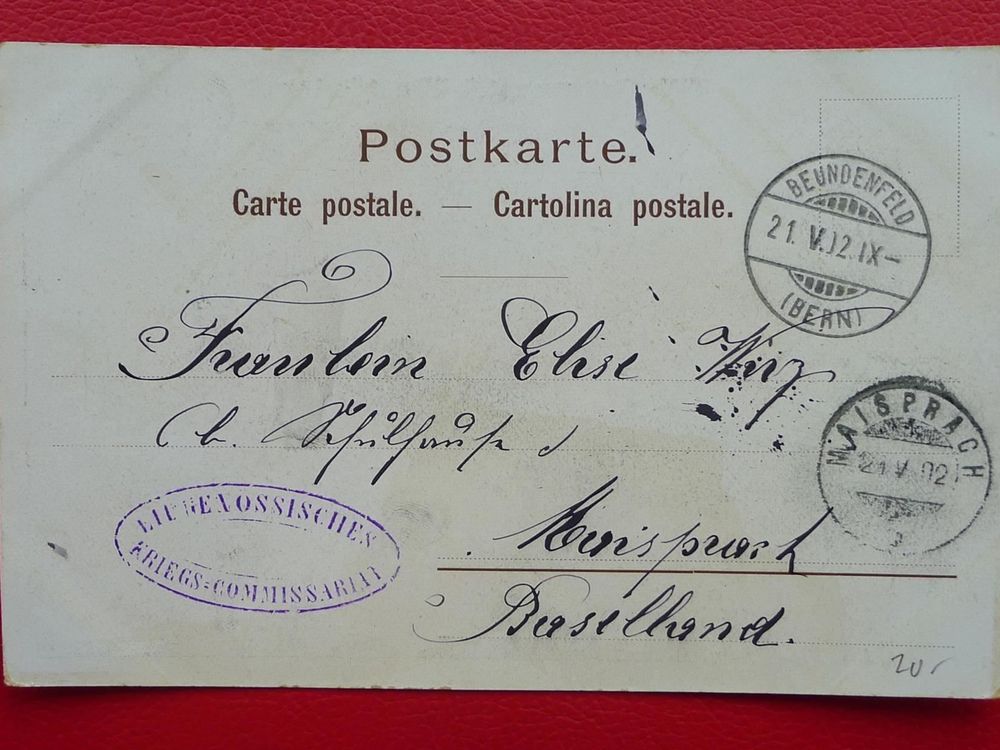 Postkarte.
Carte postale. — Cartolina postale.
BEUNDENFELD
21. V.02.IX—
(BERN)
Fraulein Elise Wirz
(b. Schulhause)
MAISPRACH
21 V 02
EIDGENOSSISCHES
KRIEGS=COMMISSARIAT
Maisprach
Baselland.